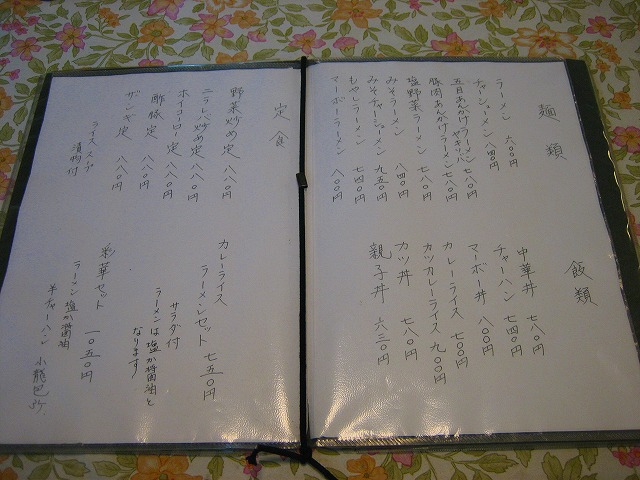 麺類
ラーメン 六〇〇円
チャーシューメン 八四〇円
五目あんかけラーメン 七八〇円
ヤキソバ
豚肉あんかけラーメン 七八〇円
塩野菜ラーメン 七八〇円
みそラーメン 八四〇円
みそチャーシューメン 九五〇円
もやしラーメン 七四〇円
マーボーラーメン 八〇〇円
飯類
中華丼 七八〇円
チャーハン 七四〇円
マーボー丼 八〇〇円
カレーライス 七〇〇円
カツカレーライス 九〇〇円
カツ丼 七八〇円
親子丼 六三〇円
定食
野菜炒め定 八八〇円
ニラレバ炒め定 八八〇円
ホイコーロー定 八八〇円
酢豚定 八八〇円
ザンギ定 八八〇円
ライス スープ
漬物付
カレーライス
ラーメンセット 七五〇円
サラダ付
ラーメンは塩か醤油と
なります
彩華セット 一〇五〇円
ラーメン塩か醤油
半チャーハン 小龍包